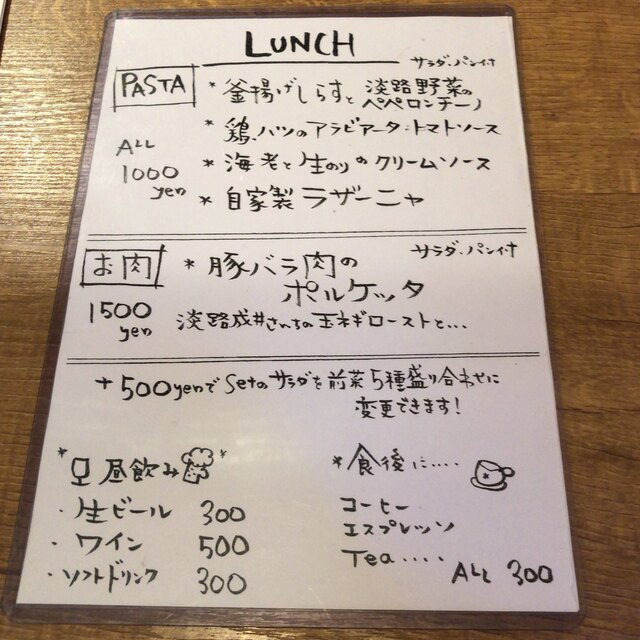 LUNCH
サラダ、パン付
PASTA
* 釜揚げしらすと 淡路野菜の
ペペロンチーノ
* 鶏ハツのアラビアータ・トマトソース
ALL
1000
yen
* 海老と生のりのクリームソース
* 自家製 ラザーニャ
サラダ、パン付
お肉
* 豚バラ肉の
ポルケッタ
1500
yen
淡路成井さんちの玉ネギローストと...
+500yenで Setのサラダを前菜5種盛り合わせに
変更できます!
* 昼飲み *
・生ビール 300
・ワイン 500
・ソフトドリンク 300
* 食後に....
コーヒー
エスプレッソ
Tea ....
ALL 300